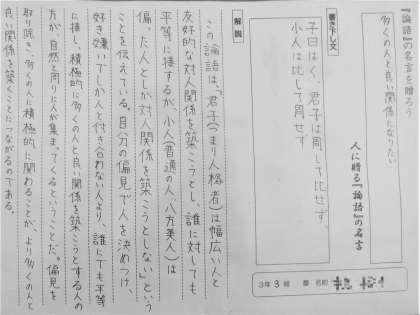 『論語』の名言を贈ろう
多くの人と良い関係になりたい
人に贈る『論語』の名言
3年 3組 番 名前
書き下し文
子曰はく、君子は周して比せず
小人は比して周せず
解説
この論語は、「君子(つまり人格者)は幅広い人と
友好的な対人関係を築こうとし、誰に対しても
平等に接するが、小人(普通の人、八方美人)は
偏った人としか対人関係を築こうとしない」という
ことを伝えている。自分の偏見で人を決めつけ、
好き嫌いでしか人と付き合わない人より、誰にでも平等
に接し、積極的に多くの人と良い関係を築こうとする人の
方が、自然と周りに人が集まってくるということだ。偏見を
取り除き、多くの人に積極的に関わることが、より多くの人と
良い関係を築くことにつながるのである。